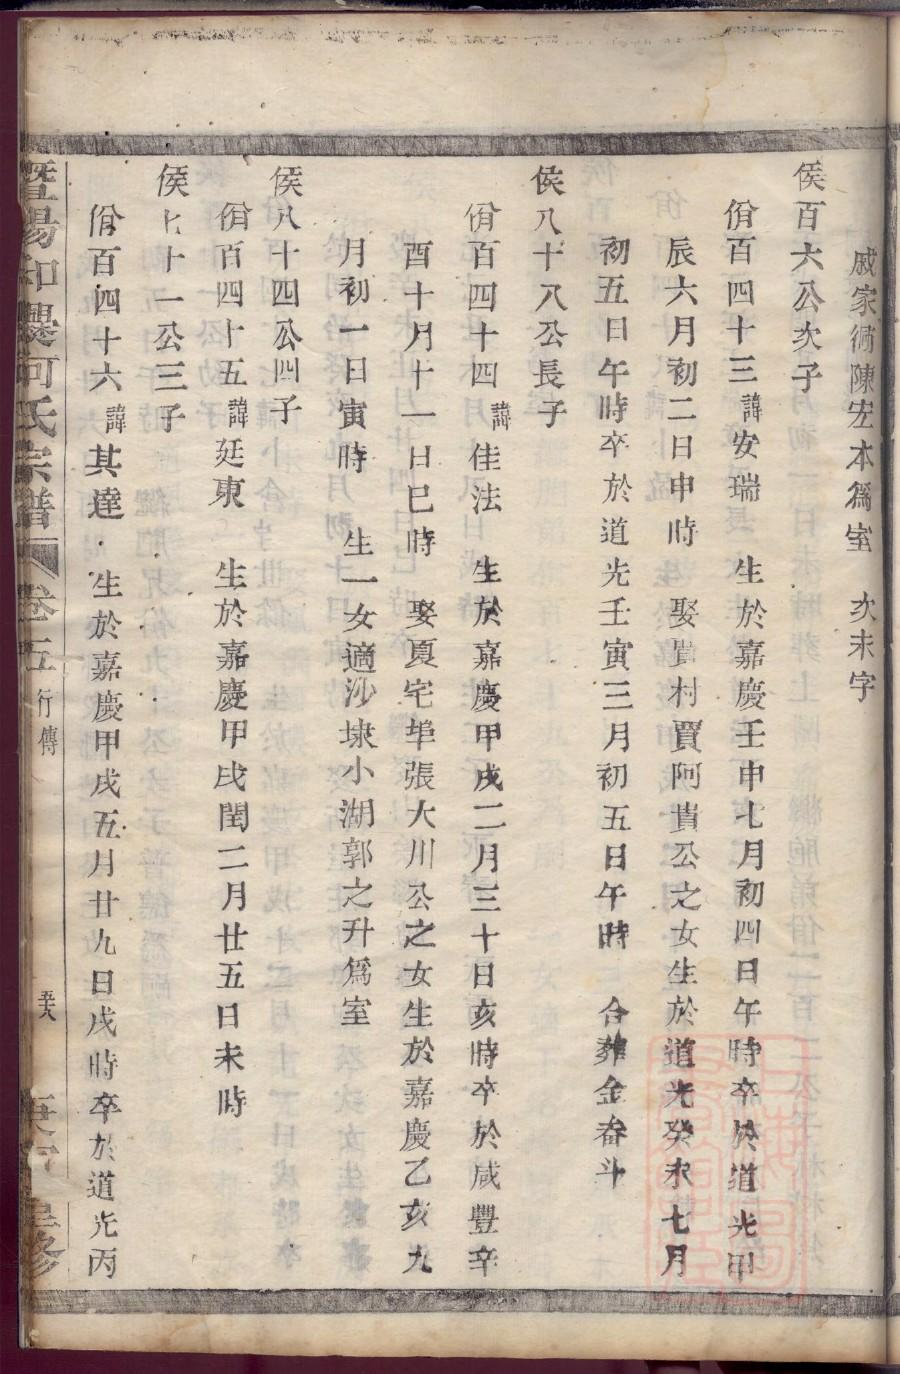 戚家衖陳宏本爲室　次未字
侯百六公次子
佾百四十三諱安瑞　生於嘉慶壬申七月初四日午時卒於道光甲
辰六月初二日申時　娶賈村賈阿貴公之女生於道光癸未七月
初五日午時卒於道光壬寅三月初五日午時　合葬金畚斗
侯八十八公長子
佾百四十四諱佳法　生於嘉慶甲戌二月三十日亥時卒於咸豐辛
酉十月十一日巳時　娶夏宅埠張大川公之女生於嘉慶乙亥九
月初一日寅時　生一女適沙埭小湖郭之升爲室
侯八十四公四子
佾百四十五諱廷東　生於嘉慶甲戌閏二月廿五日未時
侯七十一公三子
佾百四十六諱其達　生於嘉慶甲戌五月廿九日戌時卒於道光丙
暨陽和興何氏宗譜　卷五　行傳